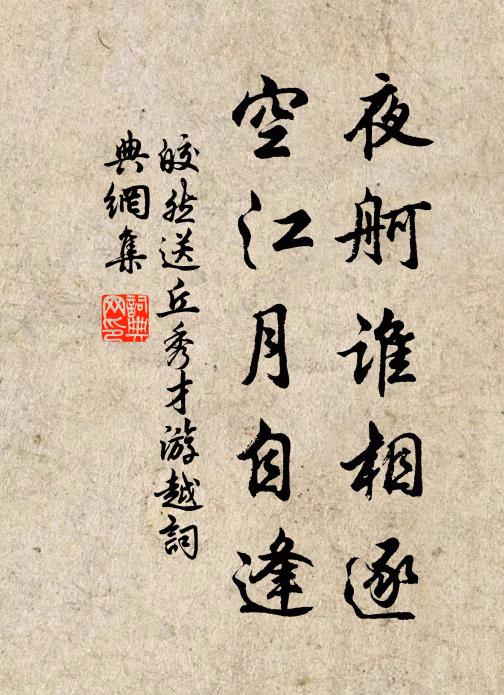 夜舸谁相逐
空江月自逢
皎然送丘秀才游越詞
典網集
詞典
网印